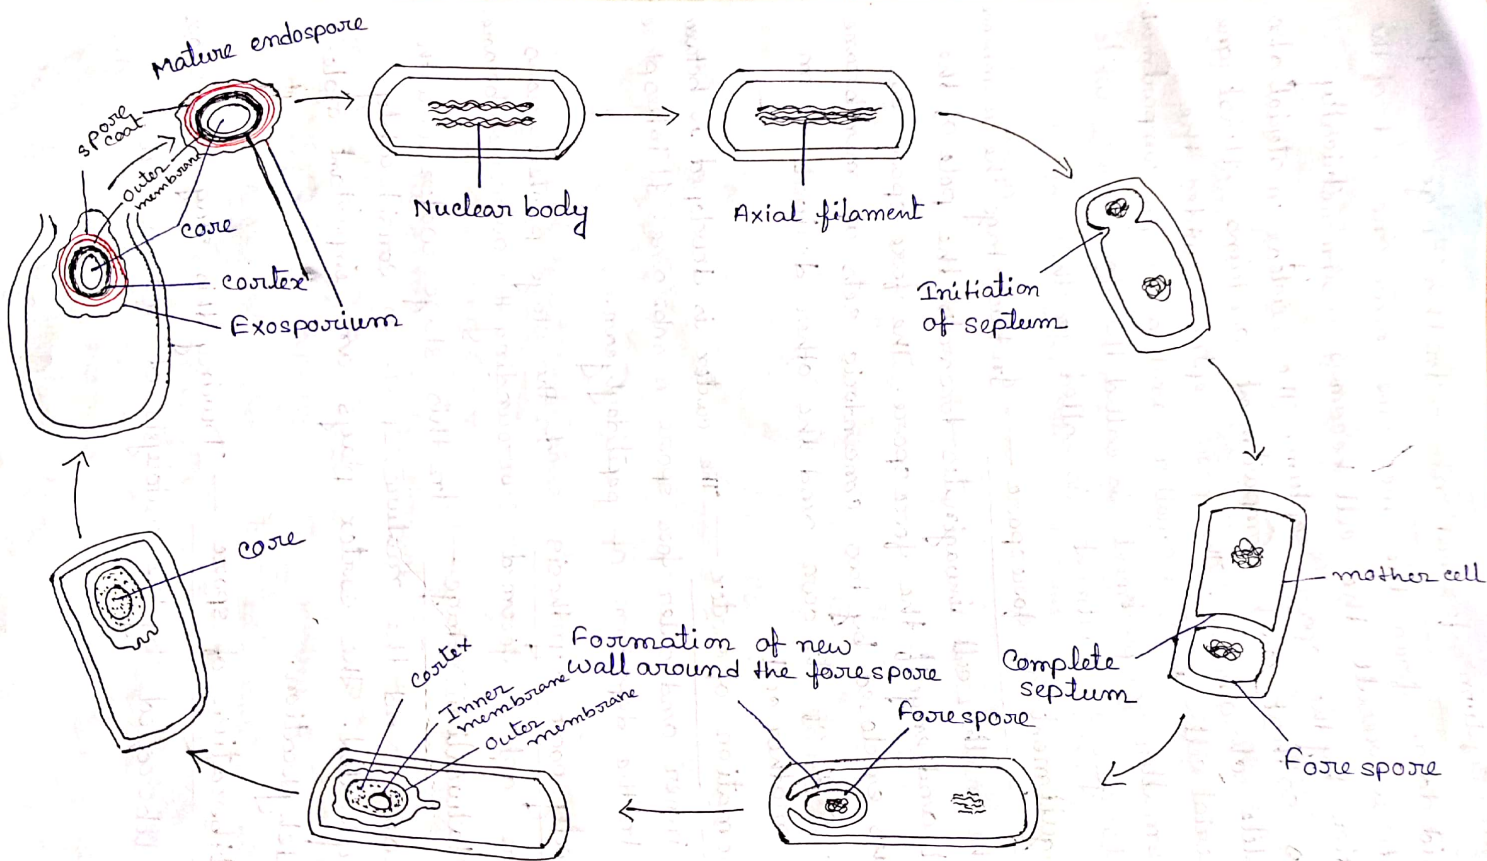 Mature endospore
spore
coat
outer
membrane
core
cortex
Exosporium
Nuclear body
Axial filament
Initiation
of septum
mother cell
Complete
septum
Forespore
Formation of new
wall around the forespore
forespore
cortex
Inner
membrane
outer
membrane
core